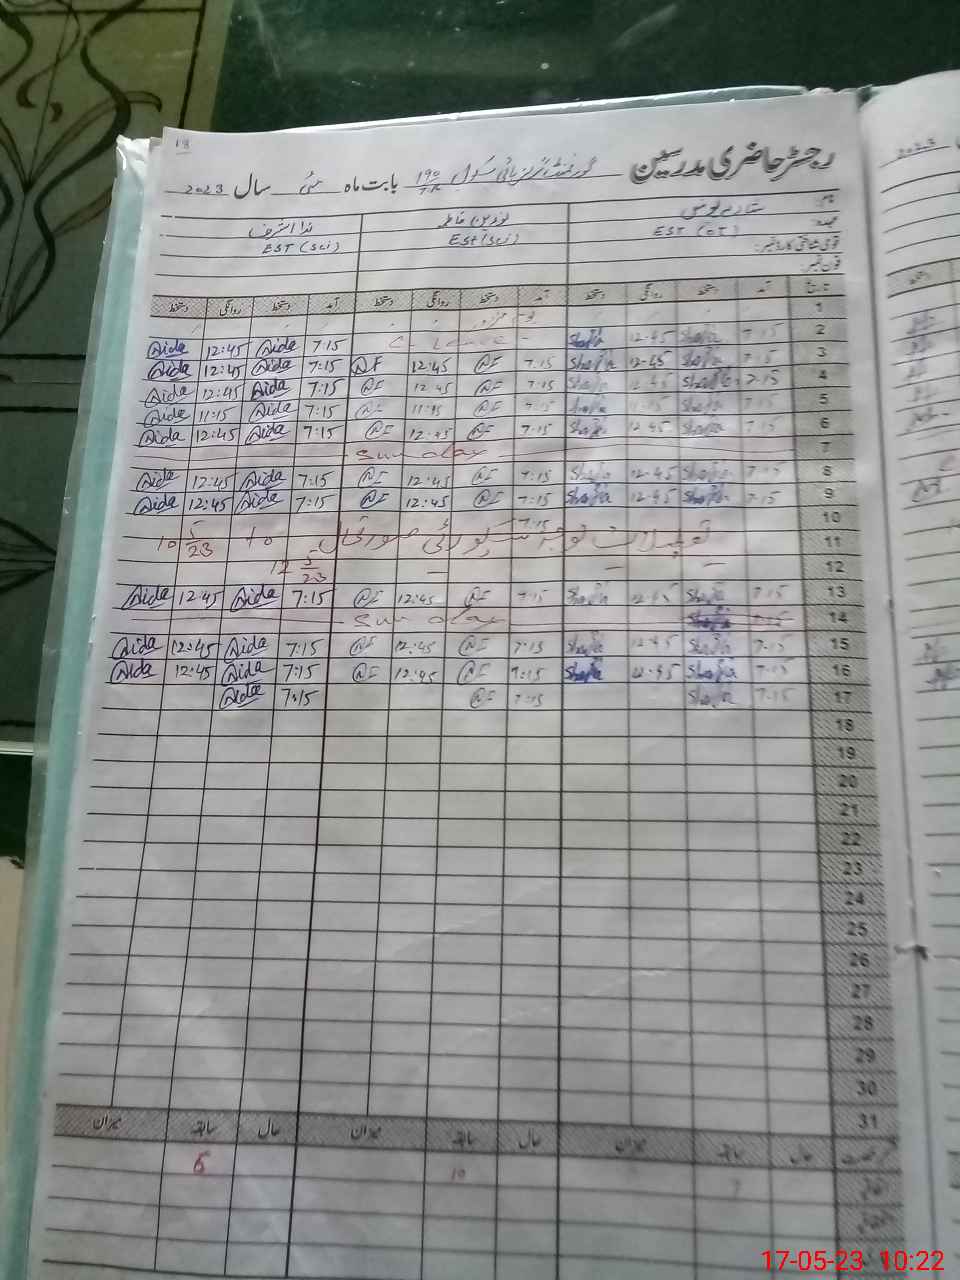 18
رجسٹر حاضری مدرسین گورنمنٹ گرلز ہائی سکول 190/7.R بابت ماہ مئی سال 2023
نام:
عہدہ: EST (OT) EST (Sci) EST (Sci)
قومی شناختی کارڈ نمبر:
فون نمبر:
تاریخ آمد دستخط روانگی دستخط آمد دستخط روانگی دستخط آمد دستخط روانگی دستخط
1 یوم مزدور
2 7:15 Shafia 12:45 Shafia C-Leave 7:15 Aida 12:45 Aida
3 7:15 Shafia 12:45 Shafia 7:15 @F 12:45 @F 7:15 Aida 12:45 Aida
4 7:15 Shafia 12:45 Shafia 7:15 @F 12:45 @F 7:15 Aida 12:45 Aida
5 7:15 Shafia 11:15 Shafia 7:15 @F 11:15 @F 7:15 Aida 11:15 Aida
6 7:15 Shafia 12:45 Shafia 7:15 @F 12:45 @F 7:15 Aida 12:45 Aida
7 Sunday
8 7:15 Shafia 12:45 Shafia 7:15 @F 12:45 @F 7:15 Aida 12:45 Aida
9 7:15 Shafia 12:45 Shafia 7:15 @F 12:45 @F 7:15 Aida 12:45 Aida
10 7:15
11 تعطیلات بوجہ سکیورٹی صورتحال 10 5/23 to
12 12 5/23
13 7:15 Shafia 12:45 Shafia 7:15 @F 12:45 @F 7:15 Aida 12:45 Aida
14 7:15 Shafia Sunday
15 7:15 Shafia 12:45 Shafia 7:15 @F 12:45 @F 7:15 Aida 12:45 Aida
16 7:15 Shafia 12:45 Shafia 7:15 @F 12:45 @F 7:15 Aida 12:45 Aida
17 7:15 Shafia 7:15 @F 7:15 Aida
18
19
20
21
22
23
24
25
26
27
28
29
30
31
حال سابقہ میزان حال سابقہ میزان حال سابقہ میزان
7 10 6
17-05-23 10:22